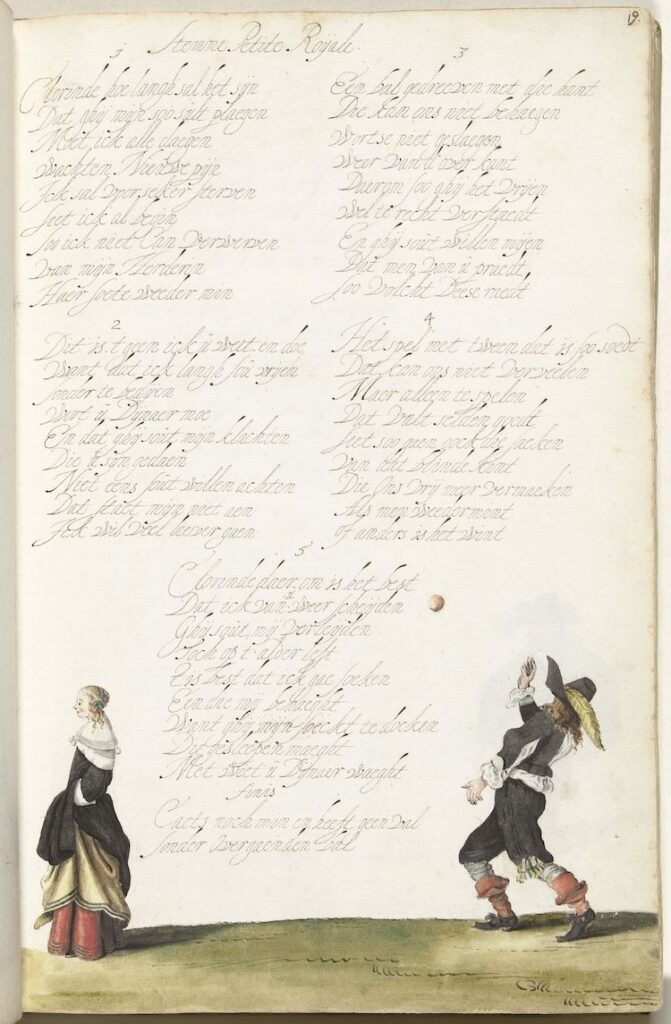 19.
Stemne Petite Roÿale.
1
Clorinde hoe langh sal het sijn
Dat ghij mijn soo sült plaegen
Moet ick alle daegen
wachten Nieuwe pijn
Ick sal voorseker sterven
soet ick al begin
soo ick niet Can verwerven
van mijn Herderin
Haer soete weeder min
2
Dit is t geen ick ü weet en doe
Want dat ick langh sou vrijen
sonder te
wort ü Dijnaer moe
En dat ghij soüt mijn klachten
Die ü sijn gedaen
Niet eens soüt willen achten
Dat staet mijn niet aen
Ick wil veel liever gaen
3
Een bal gedreeven met die hant
Die kan ons niet behaegen
Wort se niet geslaegen
Weer van d over kant
Daerom soo ghij het vrijen
wel te recht verstaet
En ghij soüt willen mijen
Dat men van ü praedt
soo volcht deese raedt
4
Het spel met tween dat is soo soedt
Dat kan ons niet verveelen
Maer alleen te speelen
Dat valt selden goedt
siet soo gaen oock die saeken
van dat blinde kint
Die ons vrij meer vermaeken
Als men weeder mint
of anders is het wint
5
Clorinde daer om is het best
Dat ick van ü weer scheijden
Ghij soüt mij verleijden
Noch op t alder lest
t is best dat ick gae soeken
Een die mij behaeght
Want ghij mijn soeckt te doeken
Die
Niet weet ü Dijnaer waeght
finis
Caets noch min en heeft geen val
sonder overgaenden bal